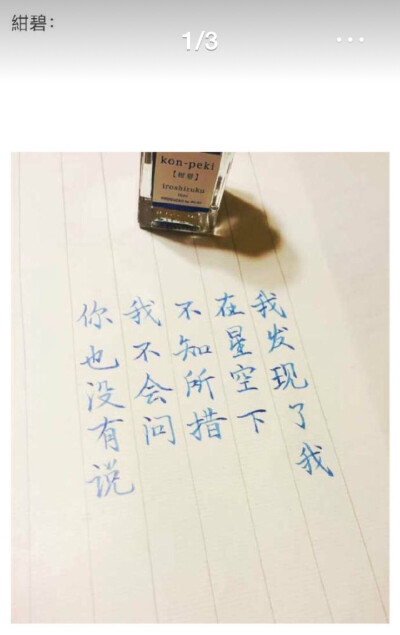 紺碧：
1/3
kon-peki
【紺碧】
iroshizuku
我发现了我
在星空下
不知所措
我不会问
你也没有说